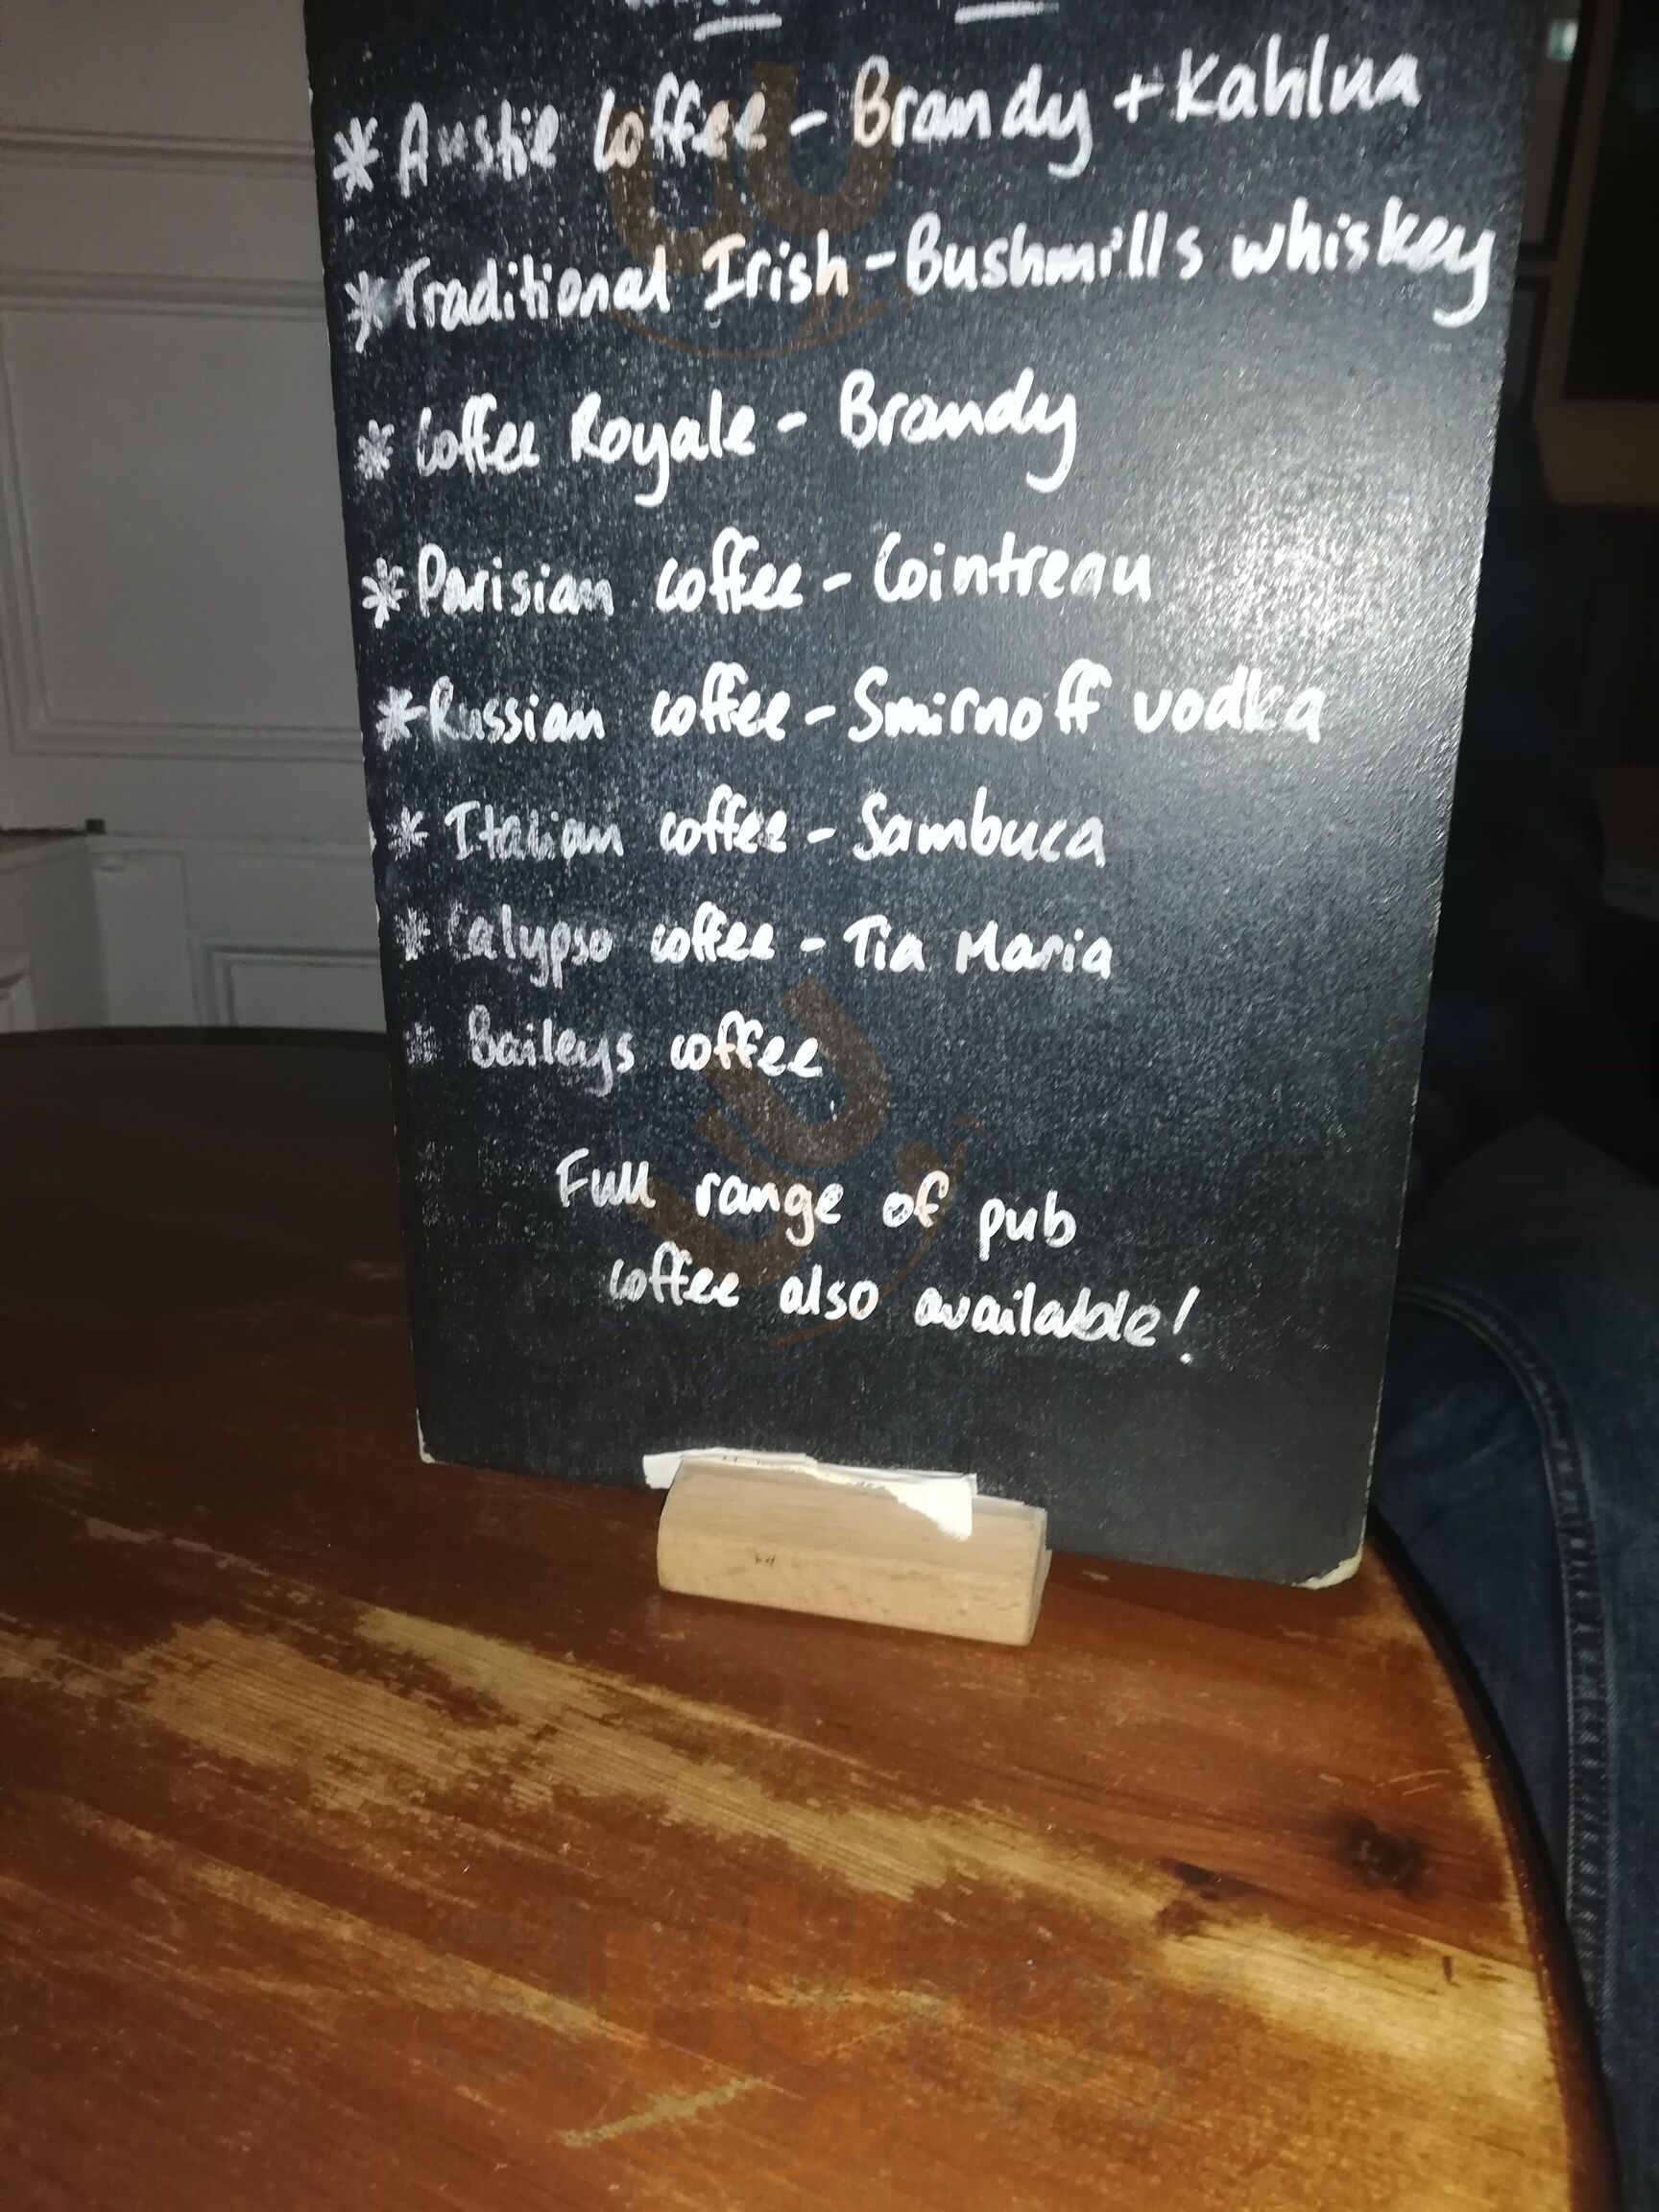 * Austie Coffee - Brandy + Kahlua
* Traditional Irish - Bushmills whiskey
* Coffee Royale - Brandy
* Parisian coffee - Cointreau
* Russian coffee - Smirnoff vodka
* Italian coffee - Sambuca
* Calypso coffee - Tia Maria
* Baileys coffee
Full range of pub
coffee also available!